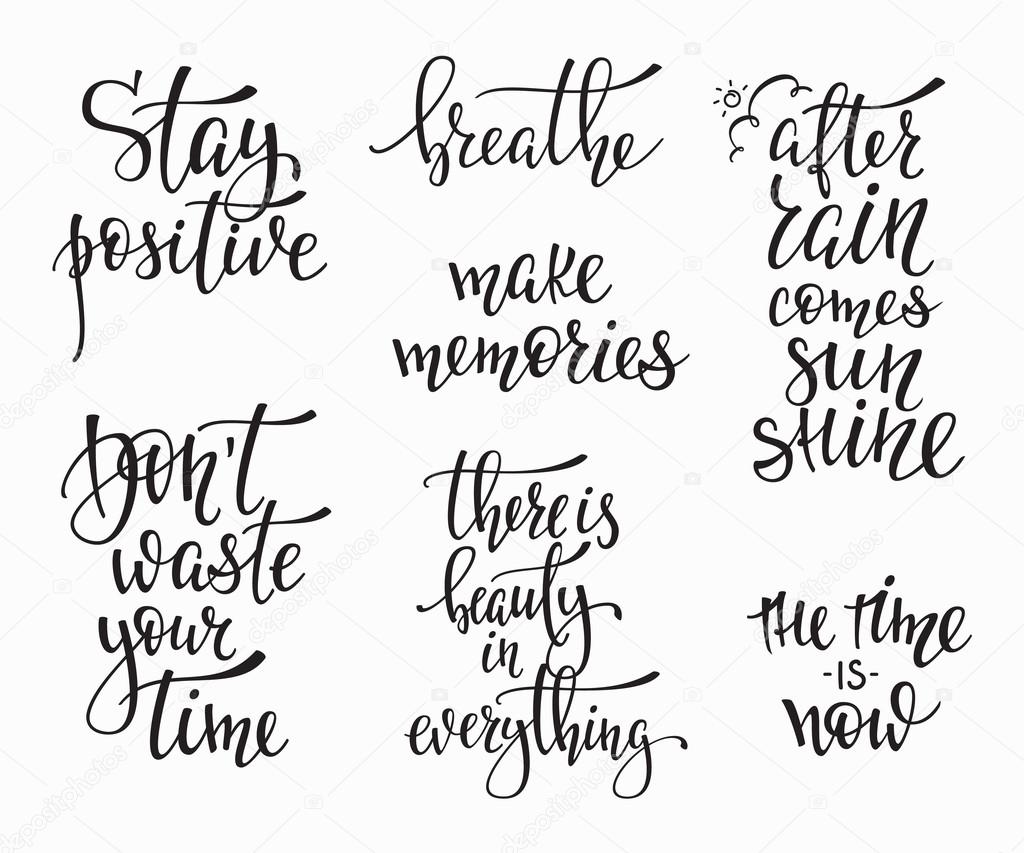 Stay
positive
breathe
make
memories
after
rain
comes
sun
shine
Don't
waste
your
time
there is
beauty
in
everything
the time
-is-
now
depositphotos